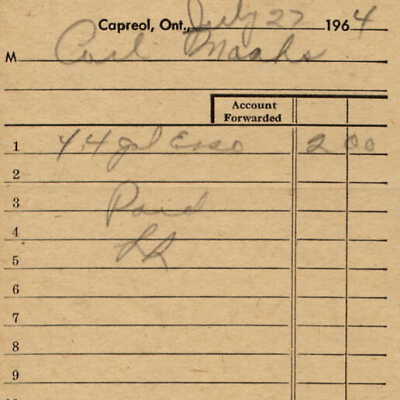 Capreol, Ont., July 27 1964
M Carl Maahs
Account
Forwarded
1 4.4 gal Esso 2 00
2
3 Paid
4
5 LR
6
7
8
9